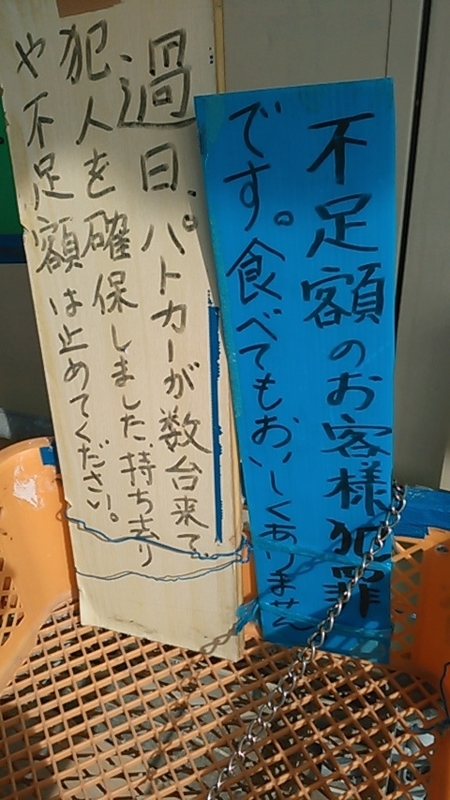 不足額のお客様犯罪
です。食べてもおいしくありません
過日、パトカーが数台来て、
犯人を確保しました、持ち去り
や不足額は止めてください。